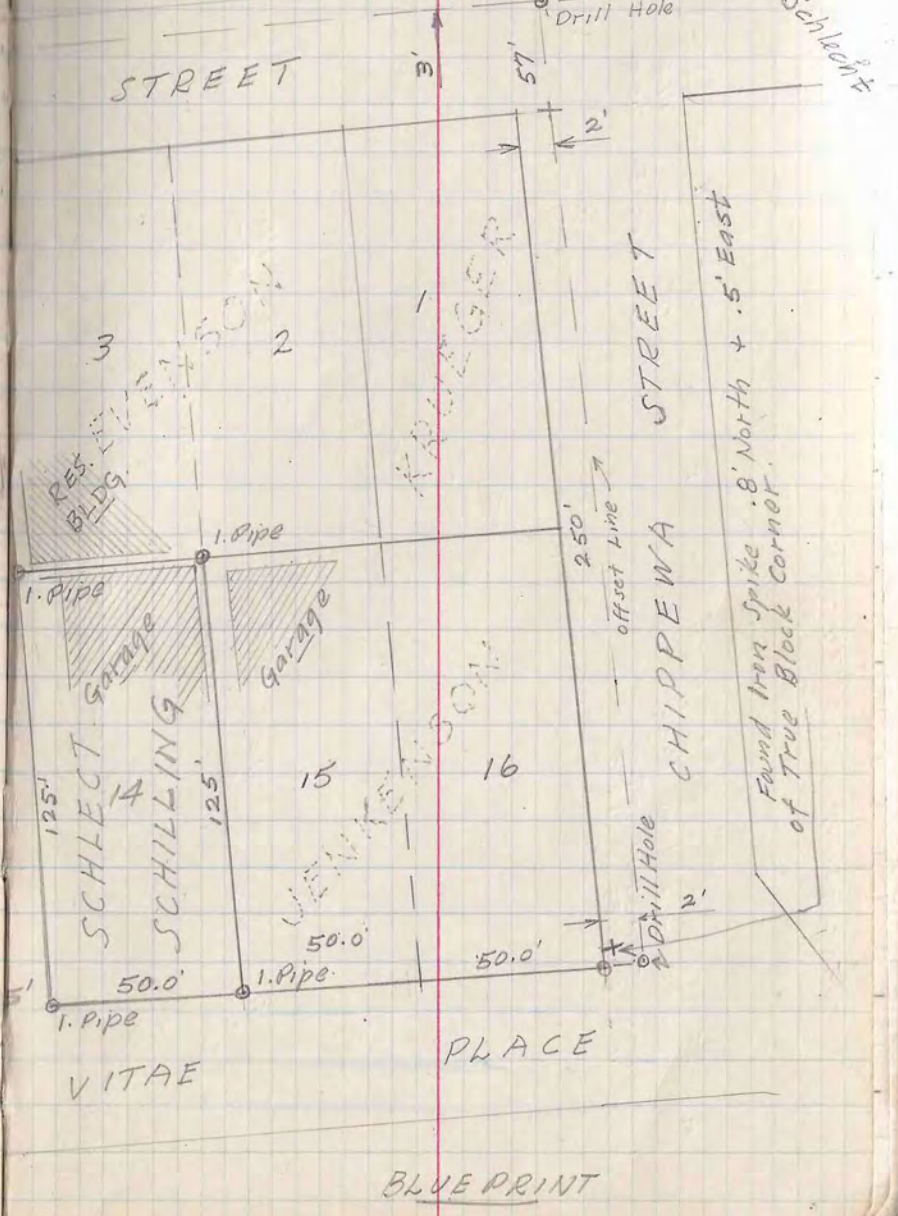 Drill Hole
Schlecht
STREET
3'
57'
2'
3
2
1
KRUEGER
RES.
BLDG.
1. Pipe
1. Pipe
Garage
Garage
250'
Offset Line
CHIPPEWA STREET
Found Iron Spike .8' North + .5' East
of True Block Corner.
125'
SCHLECT
14
SCHILLING
125'
15
16
Drill Hole
2'
50.0'
50.0'
50.0'
5'
1. Pipe
1. Pipe.
VITAE
PLACE
BLUE PRINT